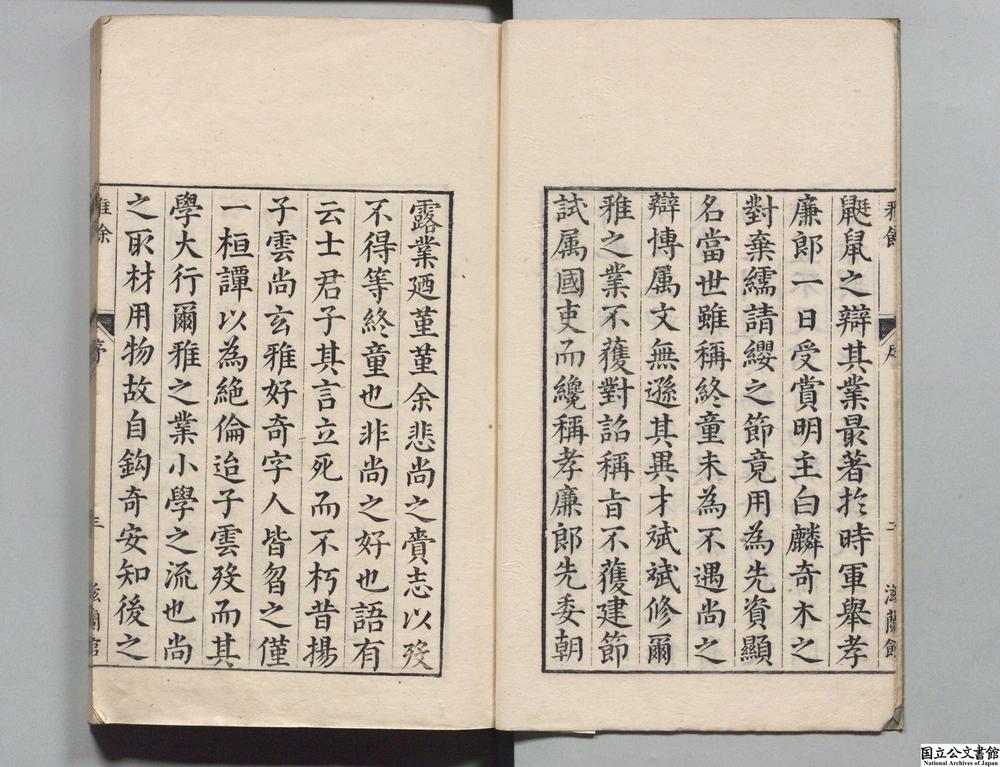 鼮鼠之辯其業最著於時軍舉孝
廉郎一日受賞明主白麟奇木之
對棄繻請纓之節竟用為先資顯
名當世雖稱終童未為不遇尚之
辯博属文無遜其異才斌斌修爾
雅之業不獲對詔稱旨不獲建節
試属國吏而纔稱孝廉郎先委朝
露業廼堇堇余悲尚之賷志以歿
不得等終童也非尚之好也語有
云士君子其言立死而不朽昔揚
子雲尚玄雅好奇字人皆曶之僅
一桓譚以為絕倫迨子雲歿而其
學大行爾雅之業小學之流也尚
之取材用物故自鈎奇安知後之
序
三
二
滋蘭館
国立公文書館
National Archives of Japan